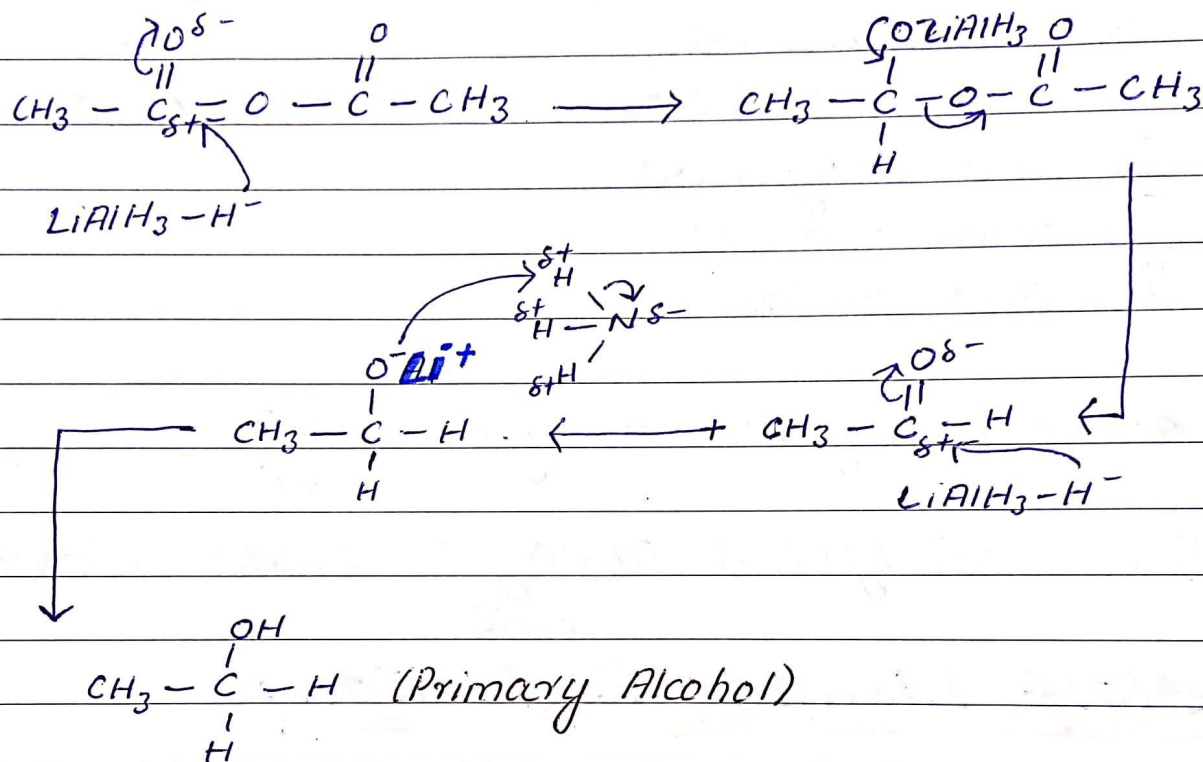 Oδ- O
CH3 - Cδ+ = O - C - CH3 → CH3 - C - O - C - CH3
OLiAlH3 O
H
LiAlH3 - H-
δ+ H
δ+ H - N δ-
δ+ H
O- Li+
CH3 - C - H . ← + CH3 - Cδ+ - H
Oδ-
H
LiAlH3 - H-
OH
CH3 - C - H (Primary Alcohol)
H